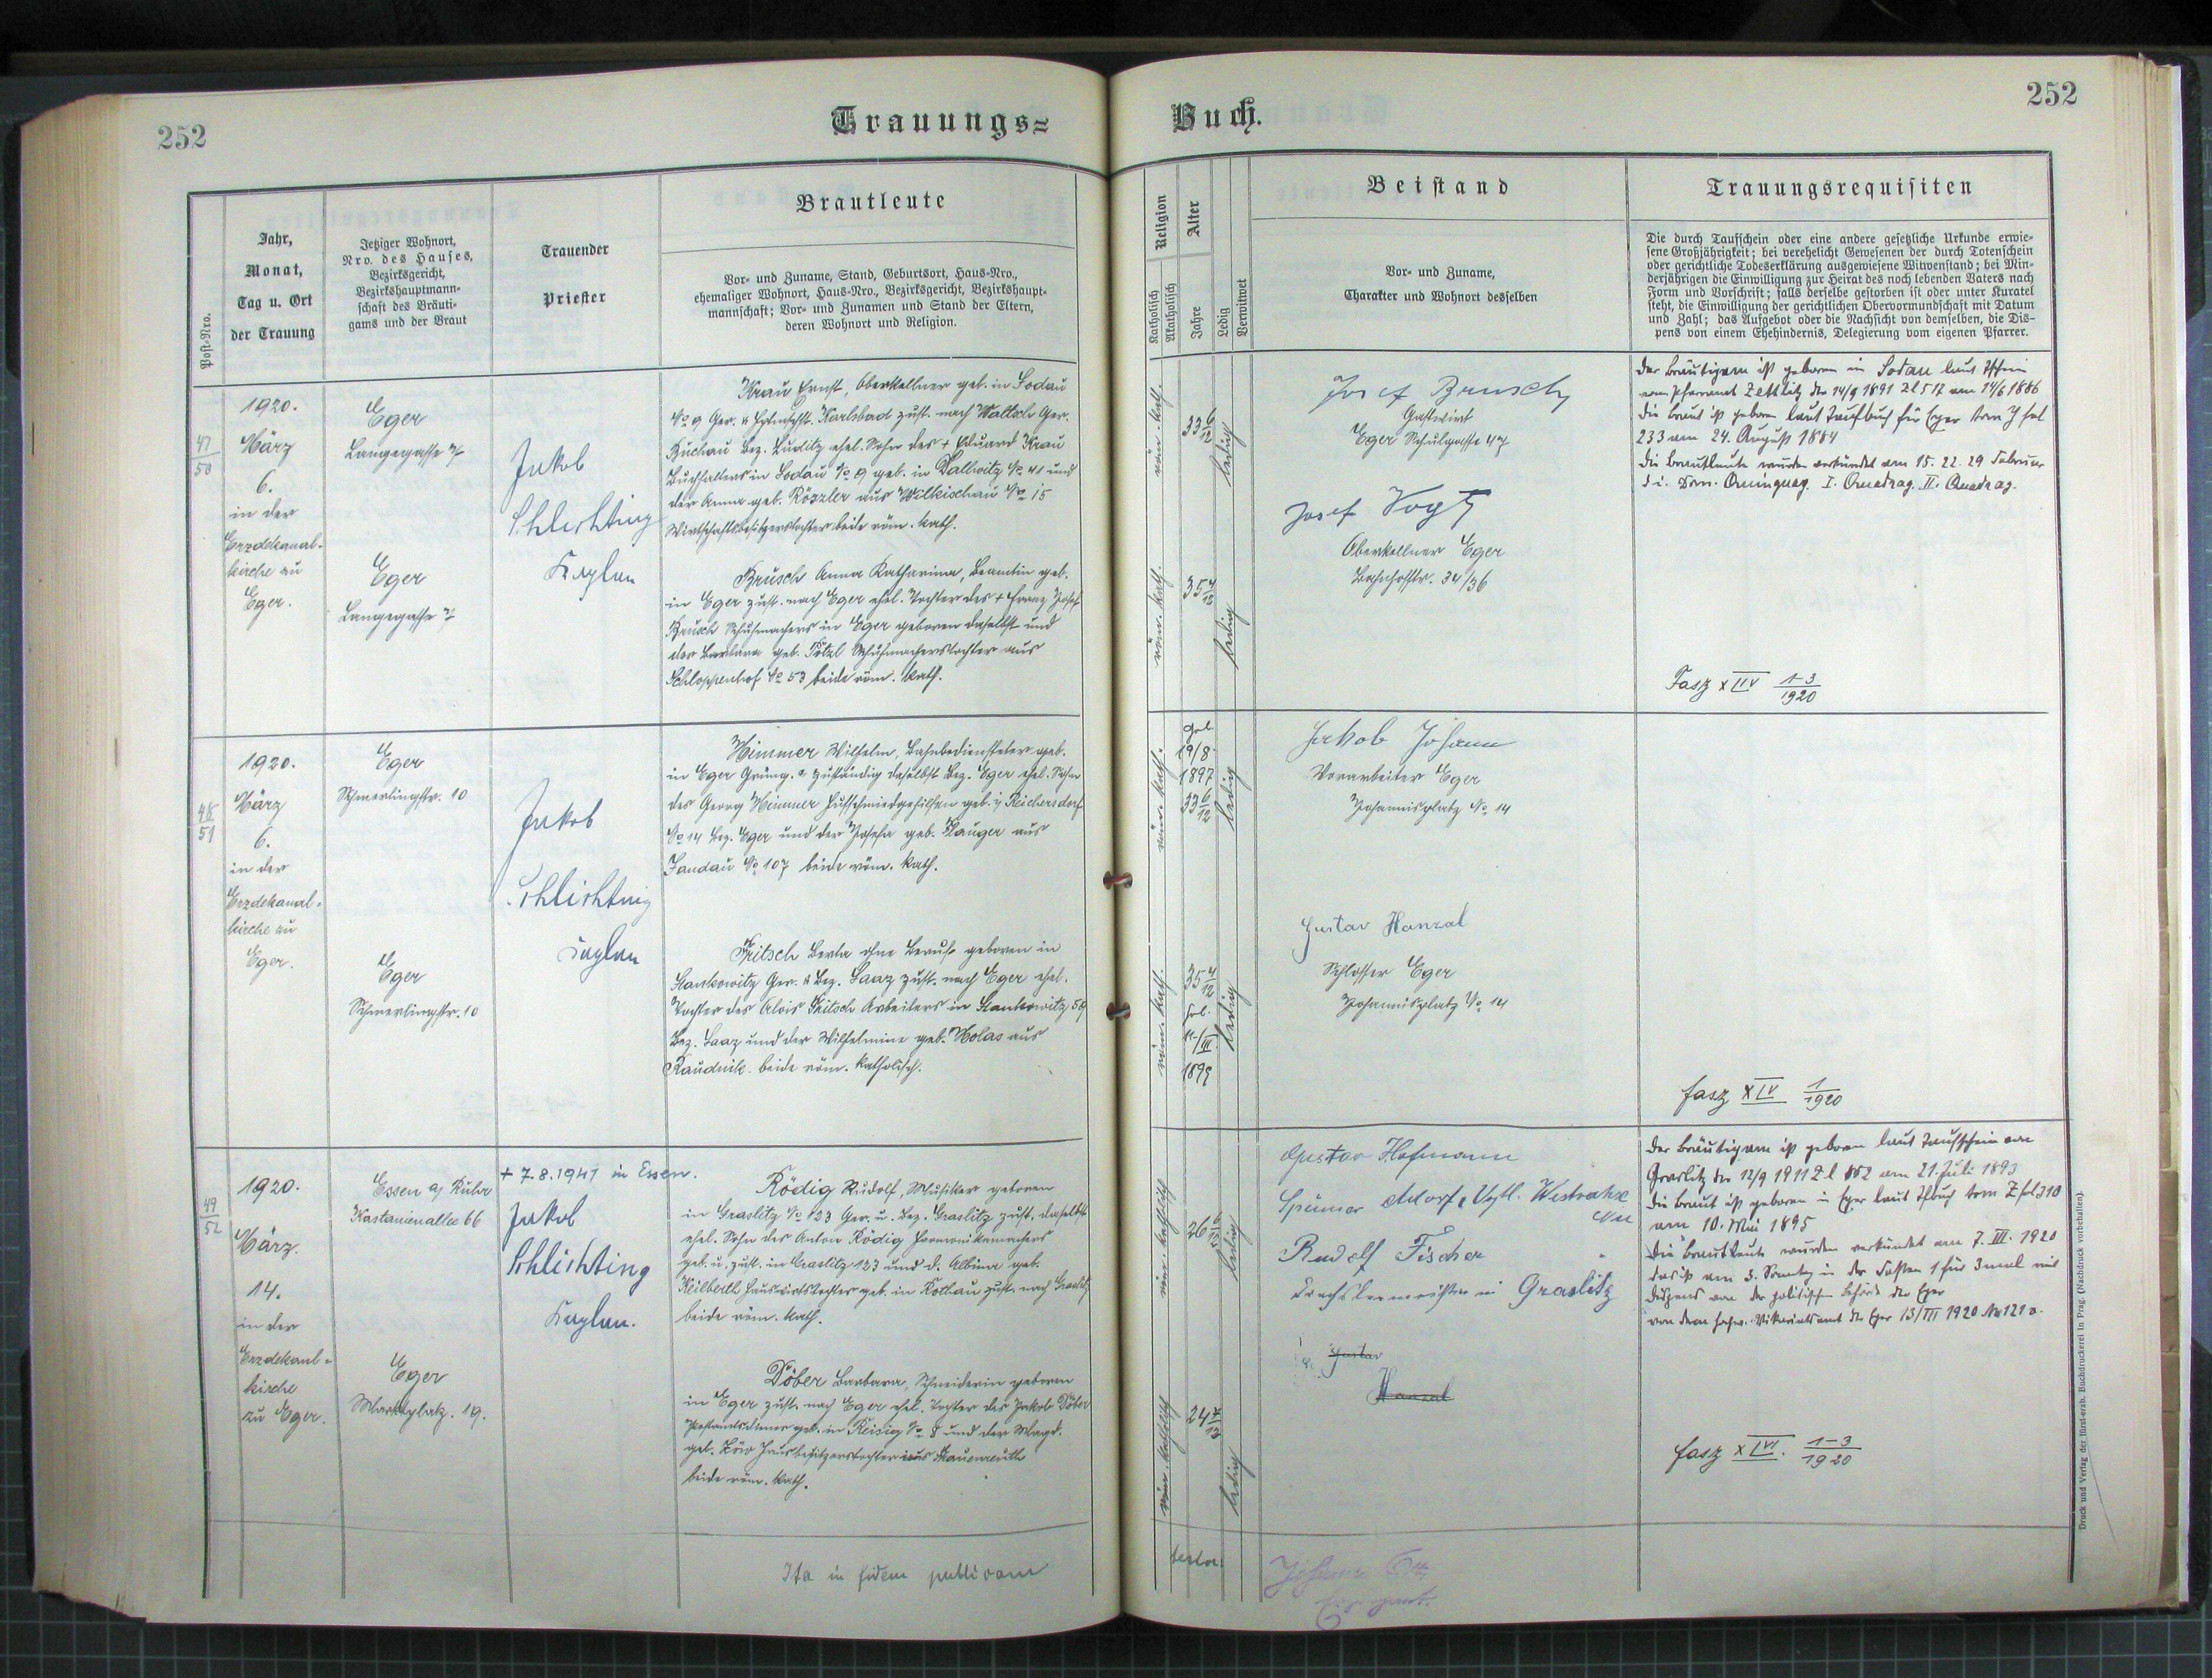 252
Trauungs-
Buch.
252
Post-Nro.
Jahr,
Monat,
Tag u. Ort
der Trauung
Jetziger Wohnort,
Nro. des Hauses,
Bezirksgericht,
Bezirkshauptmann-
schaft des Bräuti-
gams und der Braut
Trauender
Priester
Brautleute
Vor- und Zuname, Stand, Geburtsort, Haus-Nro.,
ehemaliger Wohnort, Haus-Nro., Bezirksgericht, Bezirkshaupt-
mannschaft; Vor- und Zunamen und Stand der Eltern,
deren Wohnort und Religion.
Religion
Katholisch
Akatholisch
Alter
Jahre
Ledig
Verwitwet
Beistand
Vor- und Zuname,
Charakter und Wohnort desselben
Trauungsrequisiten
Die durch Taufschein oder eine andere gesetzliche Urkunde erwie-
sene Großjährigkeit; bei verehelicht Gewesenen der durch Totenschein
oder gerichtliche Todeserklärung ausgewiesene Witwenstand; bei Min-
derjährigen die Einwilligung zur Heirat des noch lebenden Vaters nach
Form und Vorschrift; falls derselbe gestorben ist oder unter Kuratel
steht, die Einwilligung der gerichtlichen Obervormundschaft mit Datum
und Zahl; das Aufgebot oder die Nachsicht von demselben, die Dis-
pens von einem Ehehindernis, Delegierung vom eigenen Pfarrer.
47
50
1920.
März
6.
in der
Erzdekanal-
kirche zu
Eger.
Eger
Langegasse 7
Eger
Langegasse 7
Jakob
Schlichting
Kaplan
Krau Ernst, Oberkellner geb. in Sodau
No 9 Ger. u. Bzhptmschft. Karlsbad zust. nach Waltsch Ger.
Buchau Bez. Luditz ehel. Sohn des + Eduard Krau
Buchhalters in Sodau No 9 geb. in Dallwitz No 41 und
der Anna geb. Rözzler aus Wilkischau No 15
Wirtschaftsbesitzerstochter beide röm. kath.
Brusch Anna Katharina, Beamtin geb.
in Eger zust. nach Eger ehel. Tochter des + Franz Josef
Brusch Schuhmachers in Eger geboren daselbst und
der Barbara geb. Pötzl Schuhmacherstochter aus
Schloppenhof No 53 beide röm. kath.
röm. kath.
33 6/12
ledig
röm. kath.
35 4/12
ledig
Josef Brusch
Gastwirt
Eger Schulgasse 47
Josef Vogt
Oberkellner Eger
Bahnhofstr. 34/36
der Bräutigam ist geboren in Sodau laut Tfschein
vom Pfarramt Zettlitz der 14/9 1891 Zl 517 am 14/6 1886
die Braut ist geboren laut Taufbuch für Eger tom Y fol
233 am 24. August 1884
die Brautleute wurden verkündet am 15. 22. 29 Februar
d i. Dom. Quinquag. I. Quadrag. II. Quadrag.
Fasz XIV 1-3/1920
48
51
1920.
März
6.
in der
Erzdekanal-
kirche zu
Eger.
Eger
Schmerlingstr. 10
Eger
Schmerlingstr. 10
Jakob
Schlichting
Kaplan
Himmer Wilhelm, Bahnbediensteter geb.
in Eger zuständig daselbst Bez. Eger ehel. Sohn
des Georg Himmer Hufschmiedgehilfen geb. in Reichersdorf
No 14 Bez. Eger und der Josefa geb. Hauger aus
Sandau No 107 beide röm. kath.
Fritsch Berta ohne Beruf geboren in
Stankowitz Ger. u Bez. Saaz zust. nach Eger ehel.
Tochter des Alois Fritsch Arbeiters in Stankowitz 59
Bez. Saaz und der Wilhelmine geb. Holas aus
Raudnik beide röm. katholisch.
röm. kath.
gbl.
19/8.
1897
33 6/12
ledig
röm. kath.
35 4/12
gbl.
11/III
1899
ledig
Jakob Johann
Vorarbeiter Eger
Johannisplatz No 14
Gustav Hanzal
Schlosser Eger
Johannisplatz No 14
fasz XIV 1/1920
49
52
1920.
März.
14.
in der
Erzdekanal-
kirche
zu Eger.
Essen a/ Ruhr
Kastanienallee 66
Eger
Marktplatz. 19.
+ 7.8.1941 in Essen.
Jakob
Schlichting
Kaplan.
Rödig Rudolf, Musiker geboren
in Graslitz No 123 Ger. u. Bez. Graslitz zust. daselbst
ehel. Sohn des Anton Rödig Harmonikamachers
geb. u. zust. in Graslitz 123 und d. Albina geb.
Keilberth Hauswirtstochter geb. in Rothau zust. nach Graslitz
beide röm. kath.
Döber Barbara, Schneiderin geboren
in Eger zust. nach Eger ehel. Tochter des Jakob Döber
geb. in Reisig No 8 und der Magd.
geb. Hausbesitzerstochter aus
beide röm. kath.
röm. katholisch
ledig
röm. katholisch
ledig
Gustav Hofmann
Adorf i. Vgtl.
Rudolf Fischer
in Graslitz
Gustav
Hanzal
der Bräutigam ist geboren laut Taufschein von
Graslitz der 12/9 1911 Zl 852 am 21. Juli 1893
die Braut ist geboren in Eger laut Tfbuch tom Z fol 310
am 10. Mai 1895
die Brautleute wurden verkündet am 7. III. 1920
das ist am 3. Sonntag in der Fasten 1 für 3mal mit
Dispens von der politischen Behörde der Eger
von dem hochw. Vikariatsamt der Eger 13/III 1920 No 121
fasz XIV. 1-3/1920
Ita in fidem publicam
testor:
Johann
Druck und Verlag der fürst-erzb. Buchdruckerei in Prag. (Nachdruck vorbehalten).